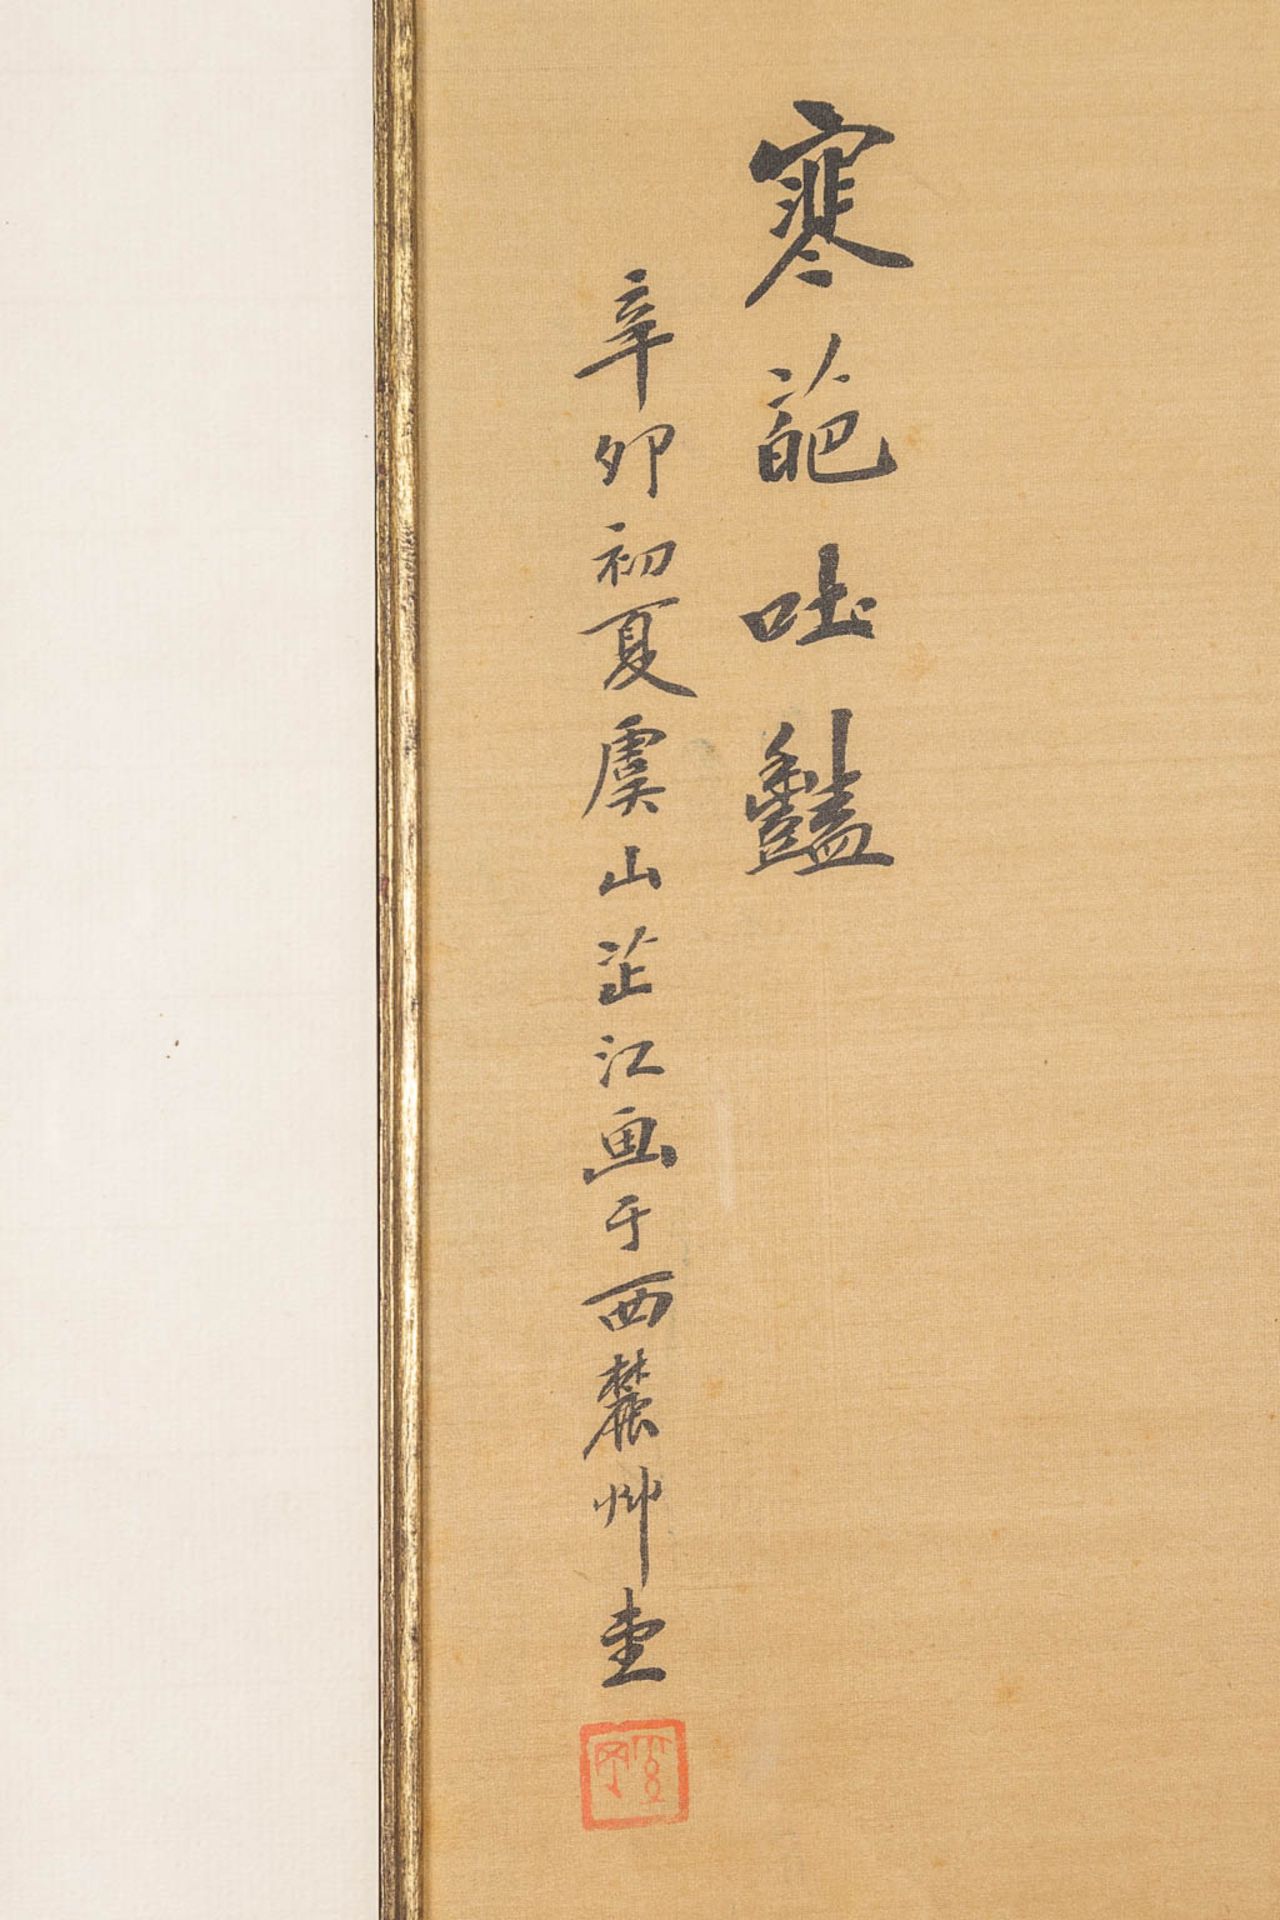 寒葩吐豔
辛卯初夏虞山芷江画于西麓艸堂